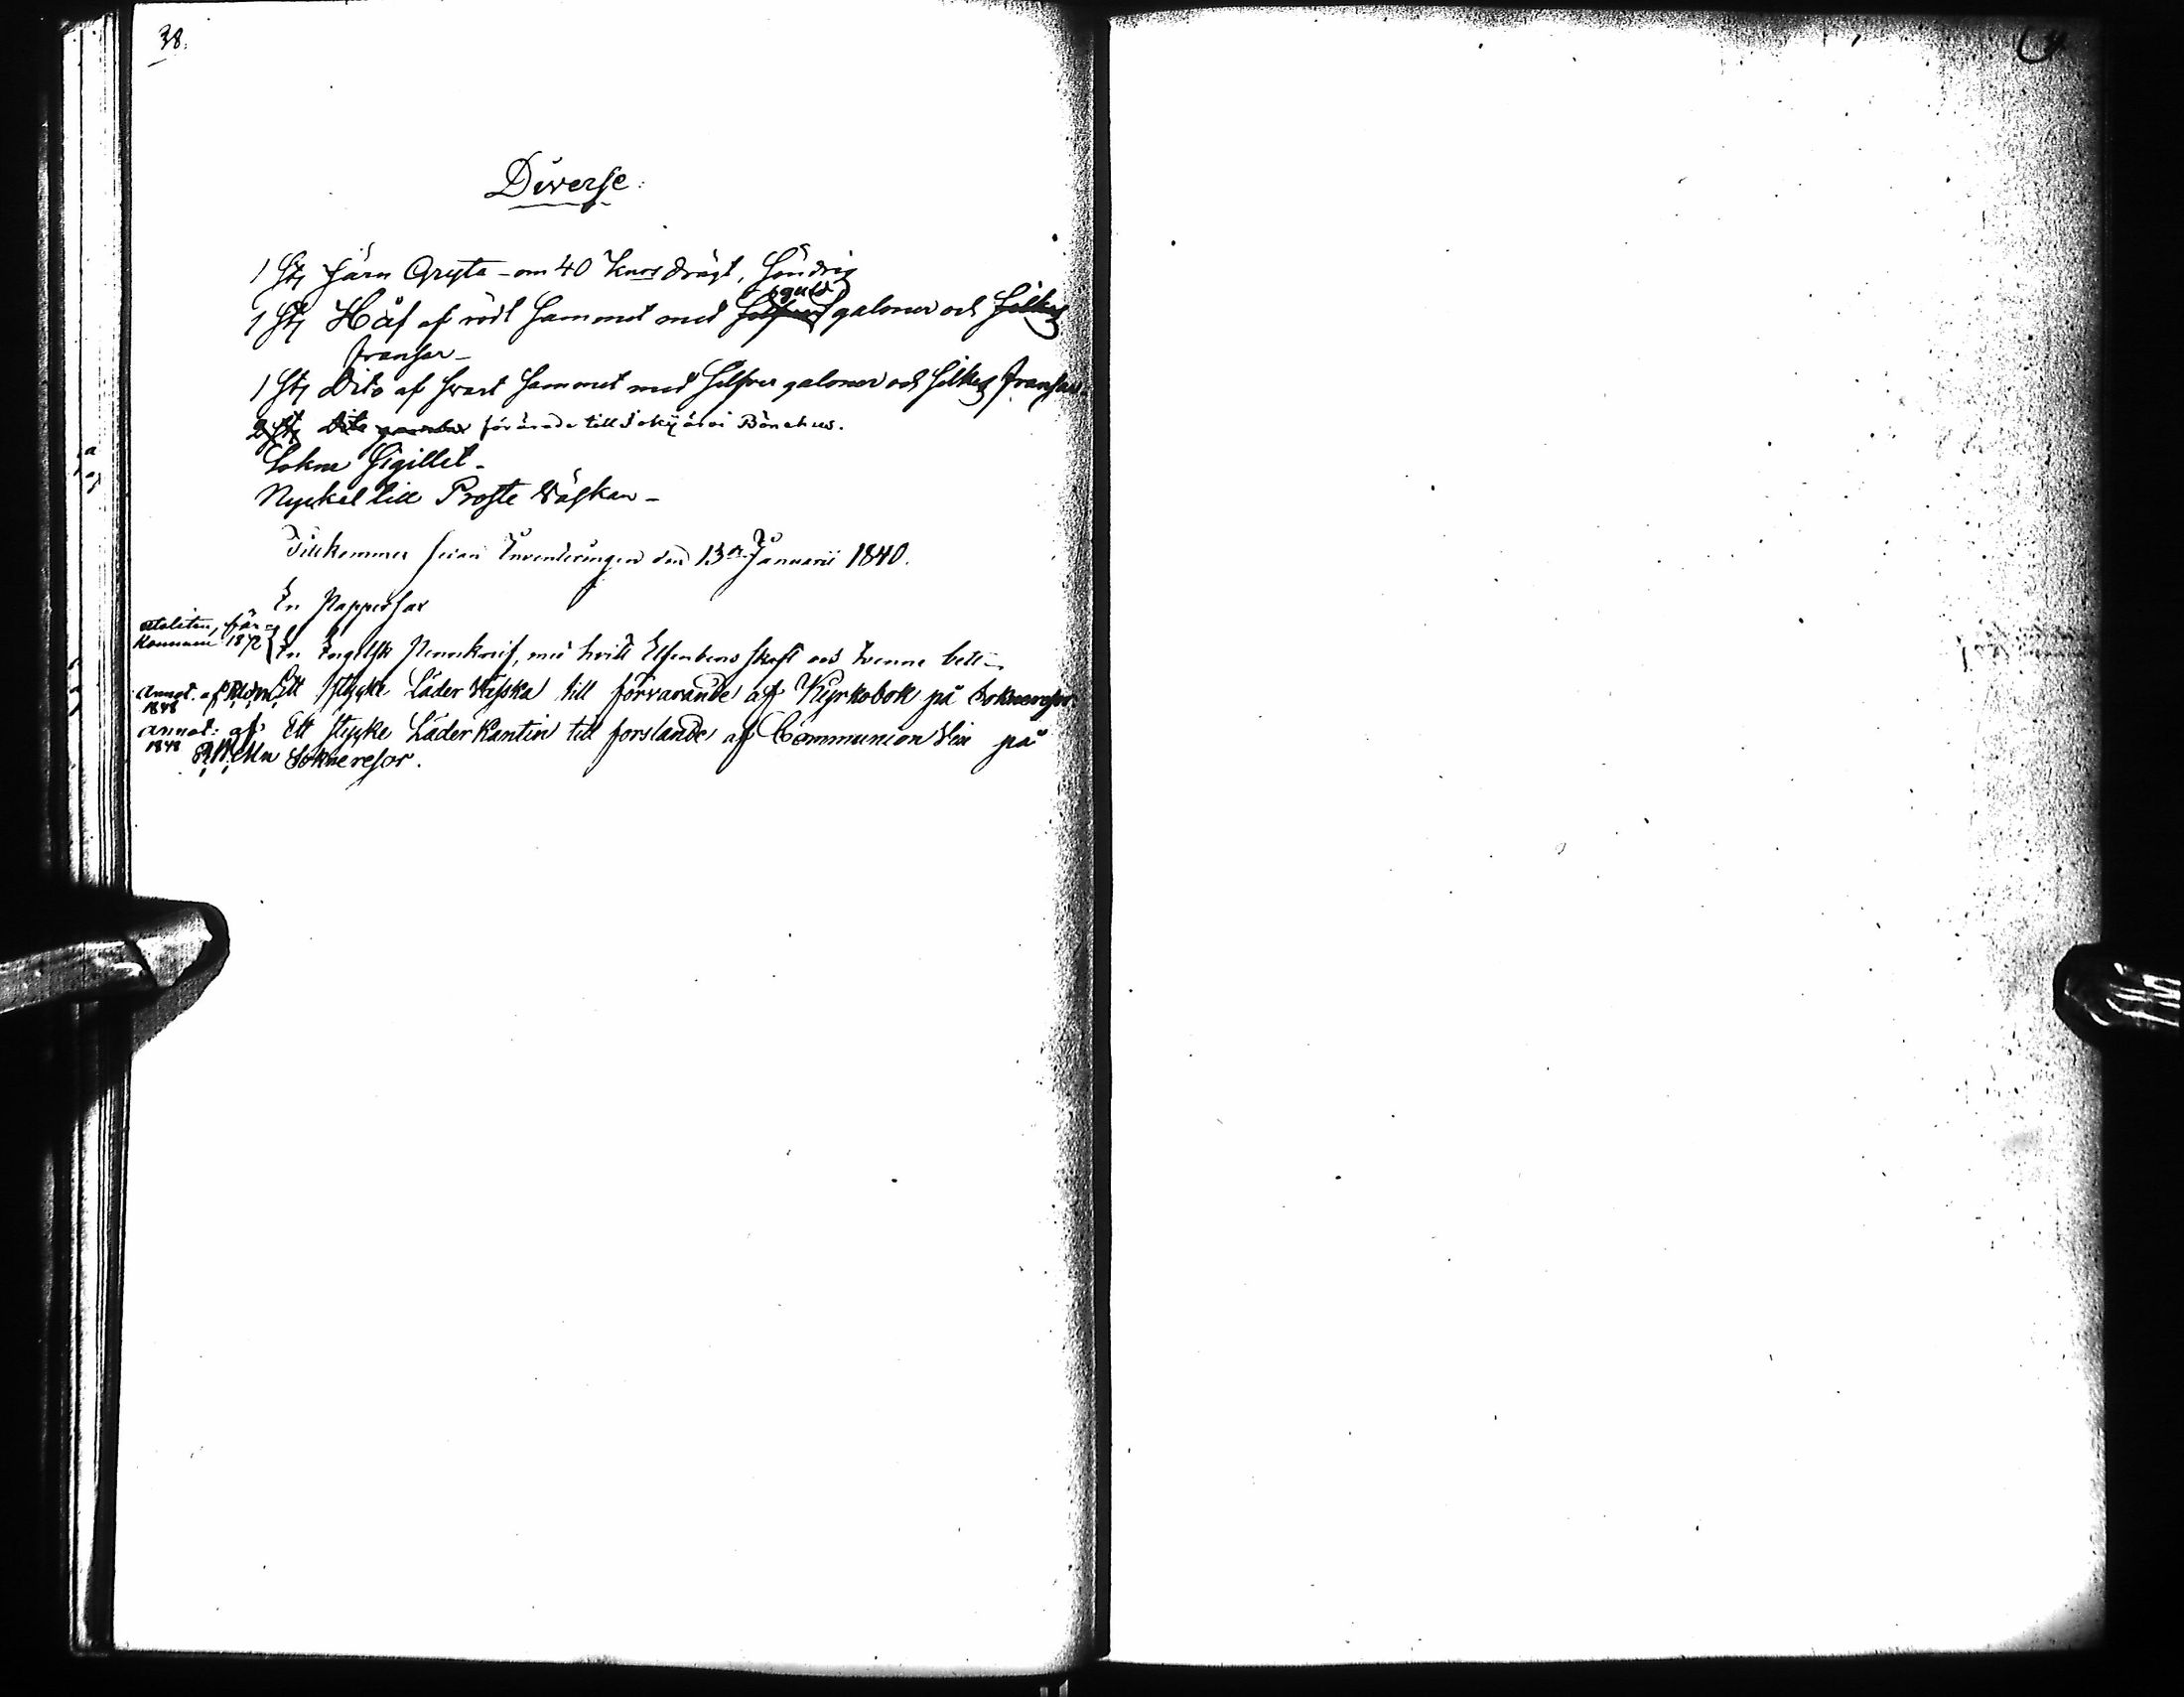 38.
Diverse.
1 St. Järn Gryta - om 40 kan̄rs drägt, söndrig
1 St. Håf af rödt Sammet med Silfver guld galoner och Silkes
fransar -
1 St. Dito af svart Sammet med Silfver galoner och Silkes fransar
2 St. Dito gamla förärade till Jokijärvi Bönehus.
Sokne Sigillet -
Nyckel till Proste Väskan -
Tillkommer sedan Inventeringen den 13de Januarii 1840.
En Papperssax
stuliten, för-
kommen 1872
En Engelsk Pennknif, med hvitt Elfenbens skaft och tvenne bett -
Annot. af
1848
Ett stycke Läder Väska till förvarande af Kyrkobok på Sokneresor
Annot: af
1848
Ett stycke Läder Kantin till forslande af Communion Vin på
Sokneresor.